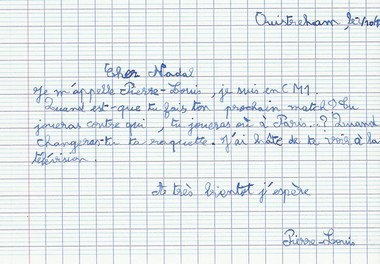 Ouistreham,
Cher Nadal
Je m'appelle Pierre-Louis, je suis en CM1.
Quand est-que tu fais ton prochain match? Tu
joueras contre qui, tu joueras où à Paris...? Quand
changeras-tu ta raquette. J'ai hâte de te voir à la
télévision.
A très bientot j'espère
Pierre-Louis